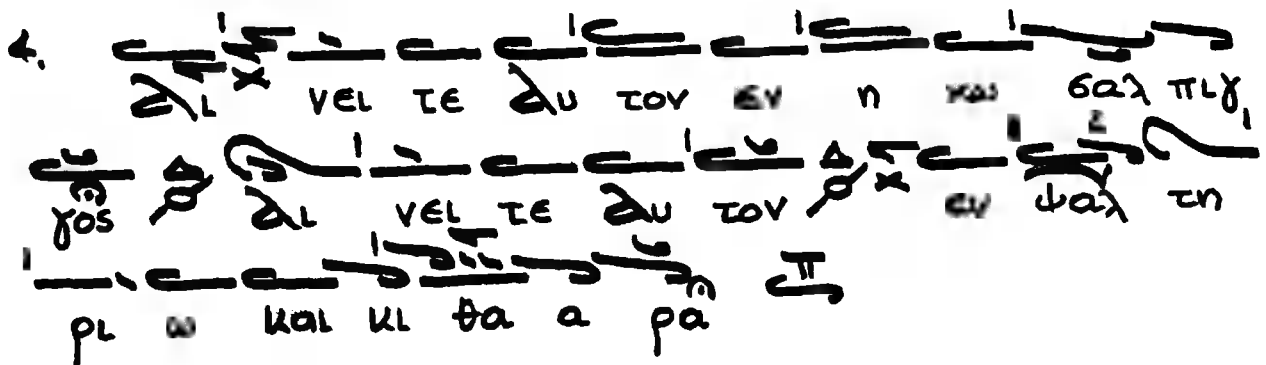 4. αι νει τε αυ τον εν η χω σαλ πιγ
γος αι νει τε αυ τον εν ψαλ τη
ρι ω και κι θα α ρα